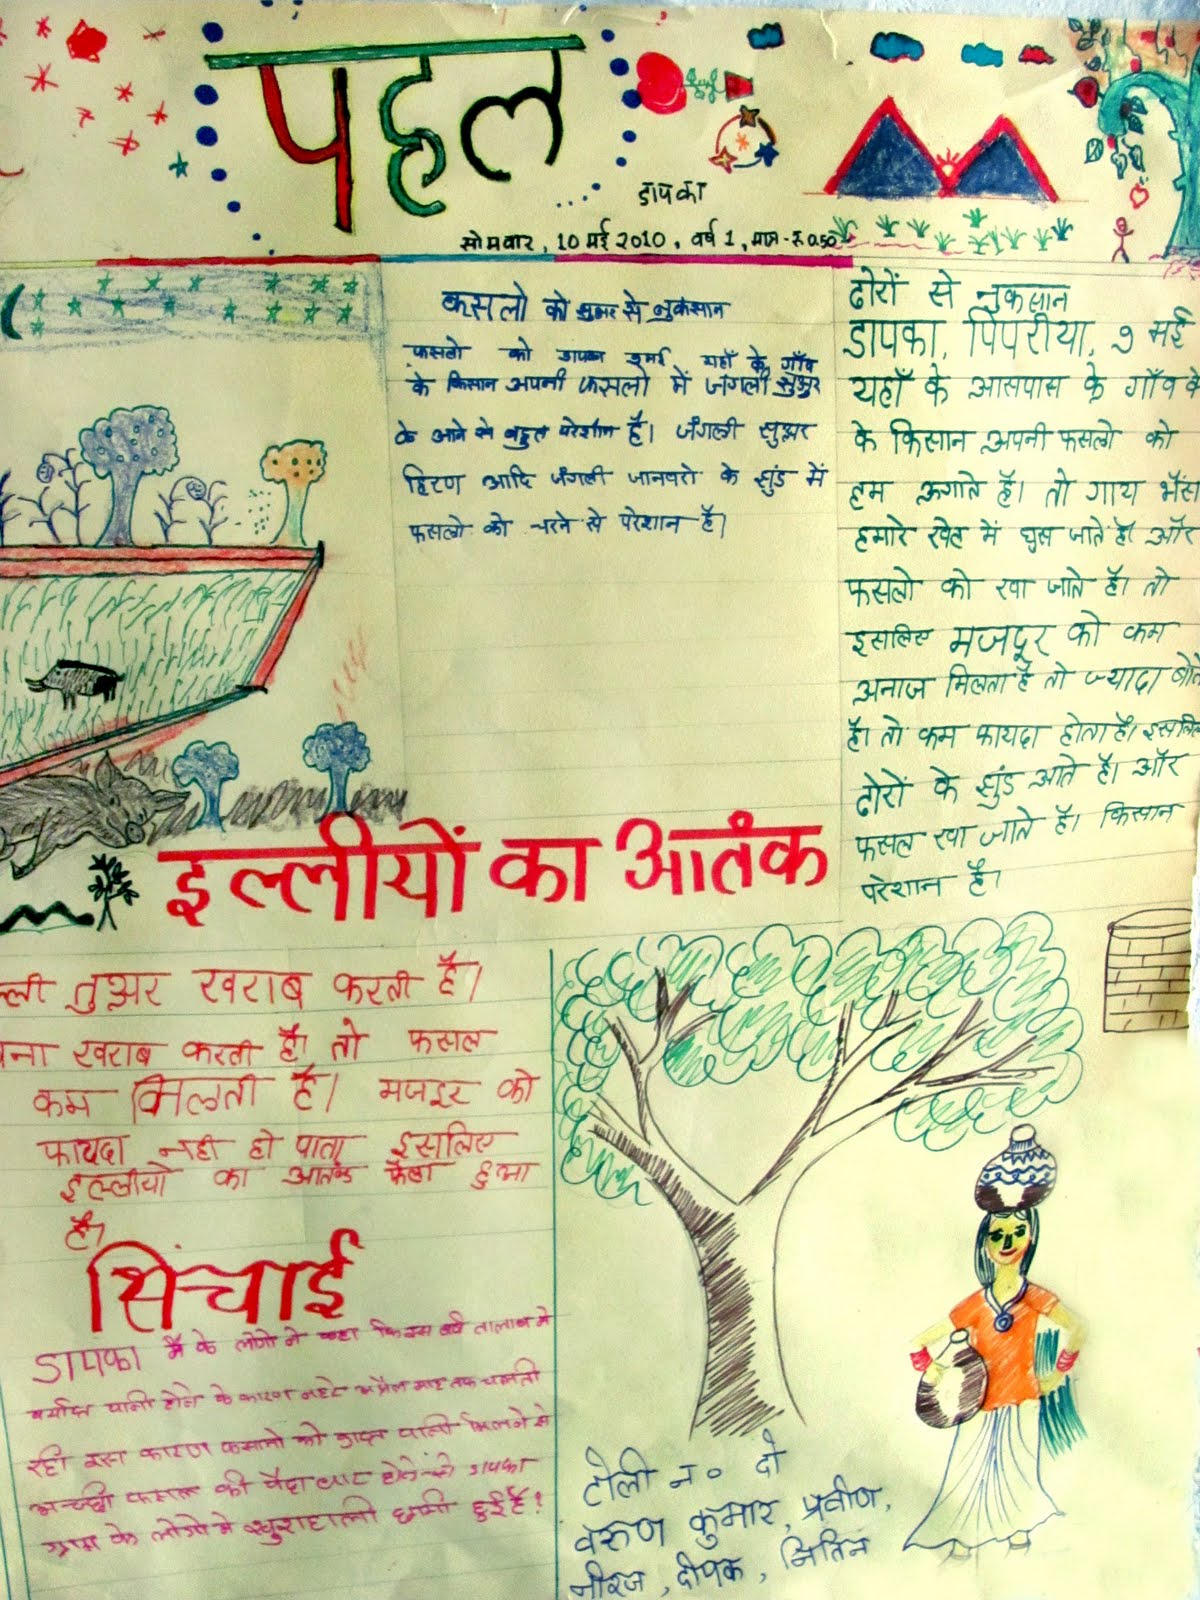 पहल
डापका
सोमवार, 10 मई 2010, वर्ष 1, मात्र - रु 0.50
फसलो को सुअर से नुकसान
फसलो को डापका 9 मई, यहाँ के गाँव
के किसान अपनी फसलो में जंगली सुअर
के आने से बहुत परेशान है। जंगली सुअर
हिरण आदि जंगली जानवरो के झुंड में
फसलो को चरने से परेशान है।
ढोरों से नुकसान
डापका, पिपरीया, 9 मई
यहाँ के आसपास के गाँव के
के किसान अपनी फसलो को
हम ऊगाते है। तो गाय भैंस
हमारे खेत में घुस जाते है। और
फसलो को खा जाते है। तो
इसलिए मजदूर को कम
अनाज मिलता है तो ज्यादा बोते
है। तो कम फायदा होता है। इसलिए
ढोरों के झुंड आते है। और
फसल खा जाते है। किसान
परेशान है।
इल्लीयों का आतंक
ल्ली तुअर खराब करती है।
चना खराब करती है। तो फसल
कम मिलती है। मजदूर को
फायदा नही हो पाता इसलिए
इल्लीयो का आतंक फैला हुआ
है।
सिंचाई
डापका में के लोगो ने कहा कि इस वर्ष तालाब में
पर्याप्त पानी होने के कारण नहरे अप्रैल माह तक चलती
रही इस कारण फसलो को पानी मिलने से
अच्छी फसल की पैदावार होने से डापका
ग्राम के लोगो मे खुशहाली छायी हुई है!
टोली नं० दो
वरुण कुमार, प्रवीण,
नीरज, दीपक, नितिन